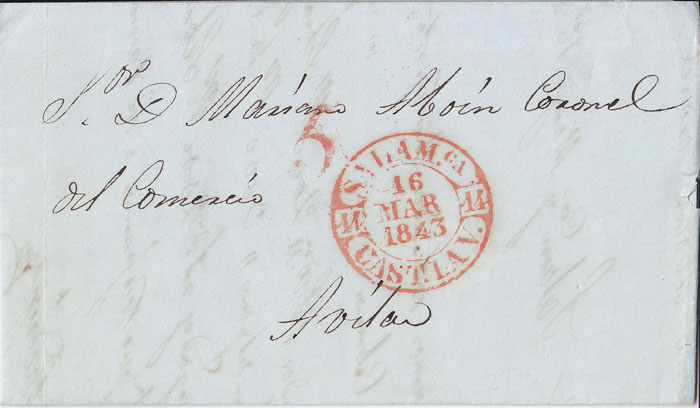 S.or D Mariano Aboín Coronel
5
del Comercio
SALAM.CA
16
MAR
1843
14 14
CAST.LA V.
Avila